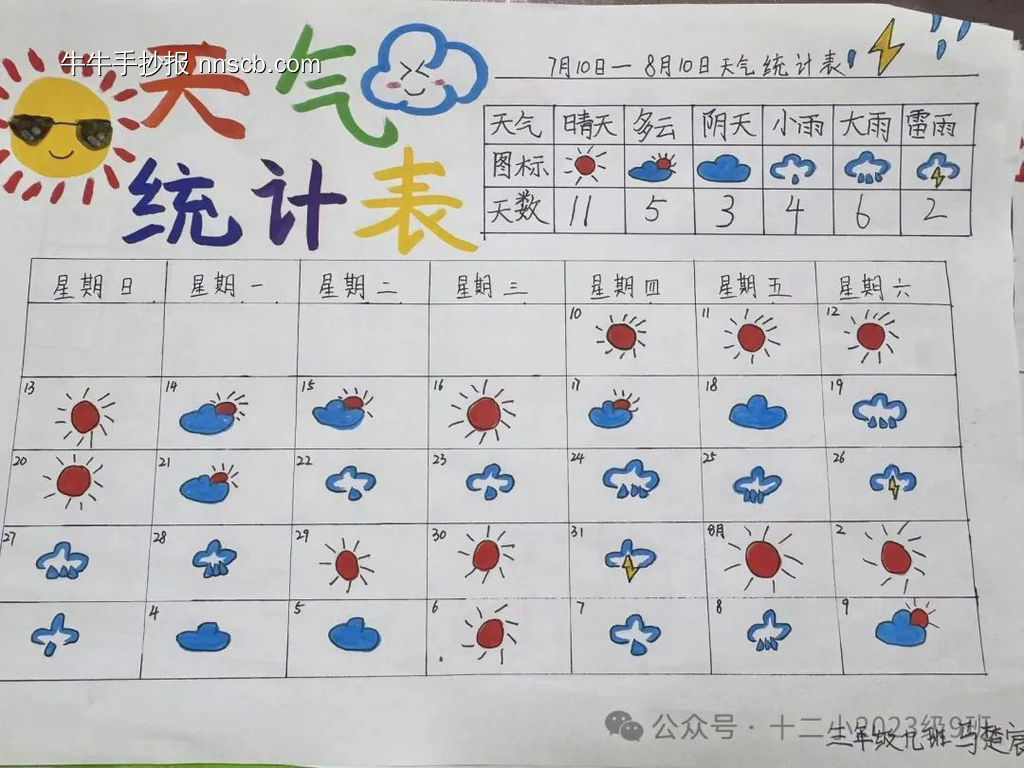 牛牛手抄报 nnscb.com
天气
统计表
7月10日一8月10日天气统计表
天气 晴天 多云 阴天 小雨 大雨 雷雨
图标
天数 11 5 3 4 6 2
星期日 星期一 星期二 星期三 星期四 星期五 星期六
10 11 12
13 14 15 16 17 18 19
20 21 22 23 24 25 26
27 28 29 30 31 8月 2
4 5 6 7 8 9
公众号·十二小2023级9班
三年级九班 马楚宸